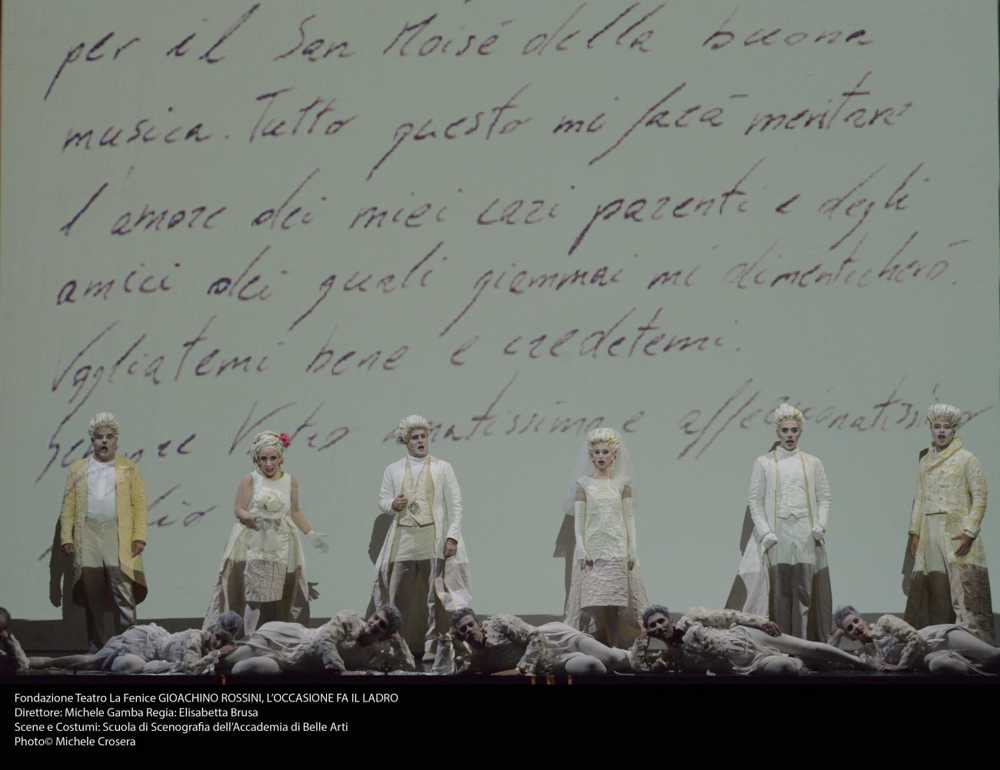 per il San Moisé della buona
musica. Tutto questo mi farà meritare
l'amore dei miei cari parenti e degli
amici dei quali giammai mi dimenticherò.
Vogliatemi bene e credetemi.
Sempre Vostro amatissimo e affezionatissimo
figlio
Fondazione Teatro La Fenice GIOACHINO ROSSINI, L'OCCASIONE FA IL LADRO
Direttore: Michele Gamba Regia: Elisabetta Brusa
Scene e Costumi: Scuola di Scenografia dell'Accademia di Belle Arti
Photo© Michele Crosera